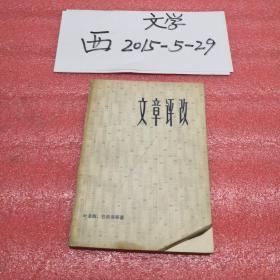 文学
西 2015-5-29
文章评改